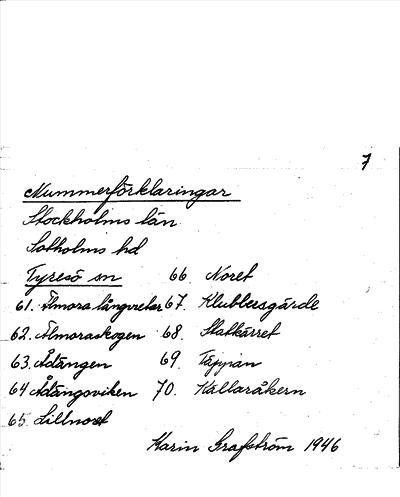 7
Nummerförklaringar
Stockholms län
Sotholms hd
Tyresö sn
61. Älmora långvretar
62. Älmoraskogen
63. Ådängen
64 Ådängsviken
65. Lillnoret
66. Noret
67. Klubbersgärde
68. Statkärret
69. Täppan
70. Källaråkern
Karin Grafström 1946